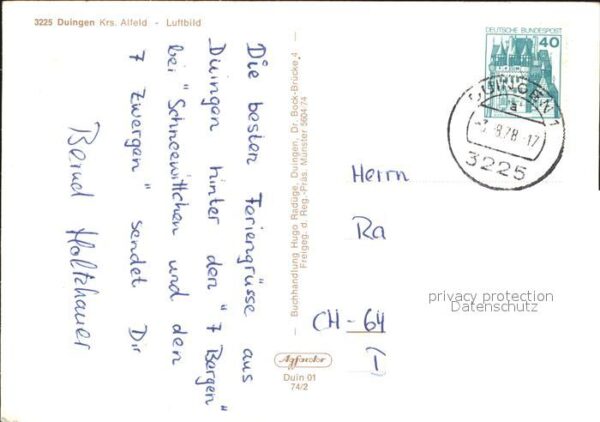 3225 Duingen Krs. Alfeld - Luftbild
Die besten Feriengrüsse aus
Duingen hinter den "7 Bergen"
bei "Schneewittchen und den
7 Zwergen" sendet Dir
Bernd Holtzhauer
Buchhandlung Hugo Radüge, Duingen, Dr. Bock-Brücke 4
Freigeg. d. Reg.-Präs. Münster 5604 74
Agfacolor
Duin 01
74/2
DEUTSCHE BUNDESPOST
40
DUINGEN 1
a
-3.-8.78-17
3225
Herrn
Ra
CH-64
privacy protection
Datenschutz